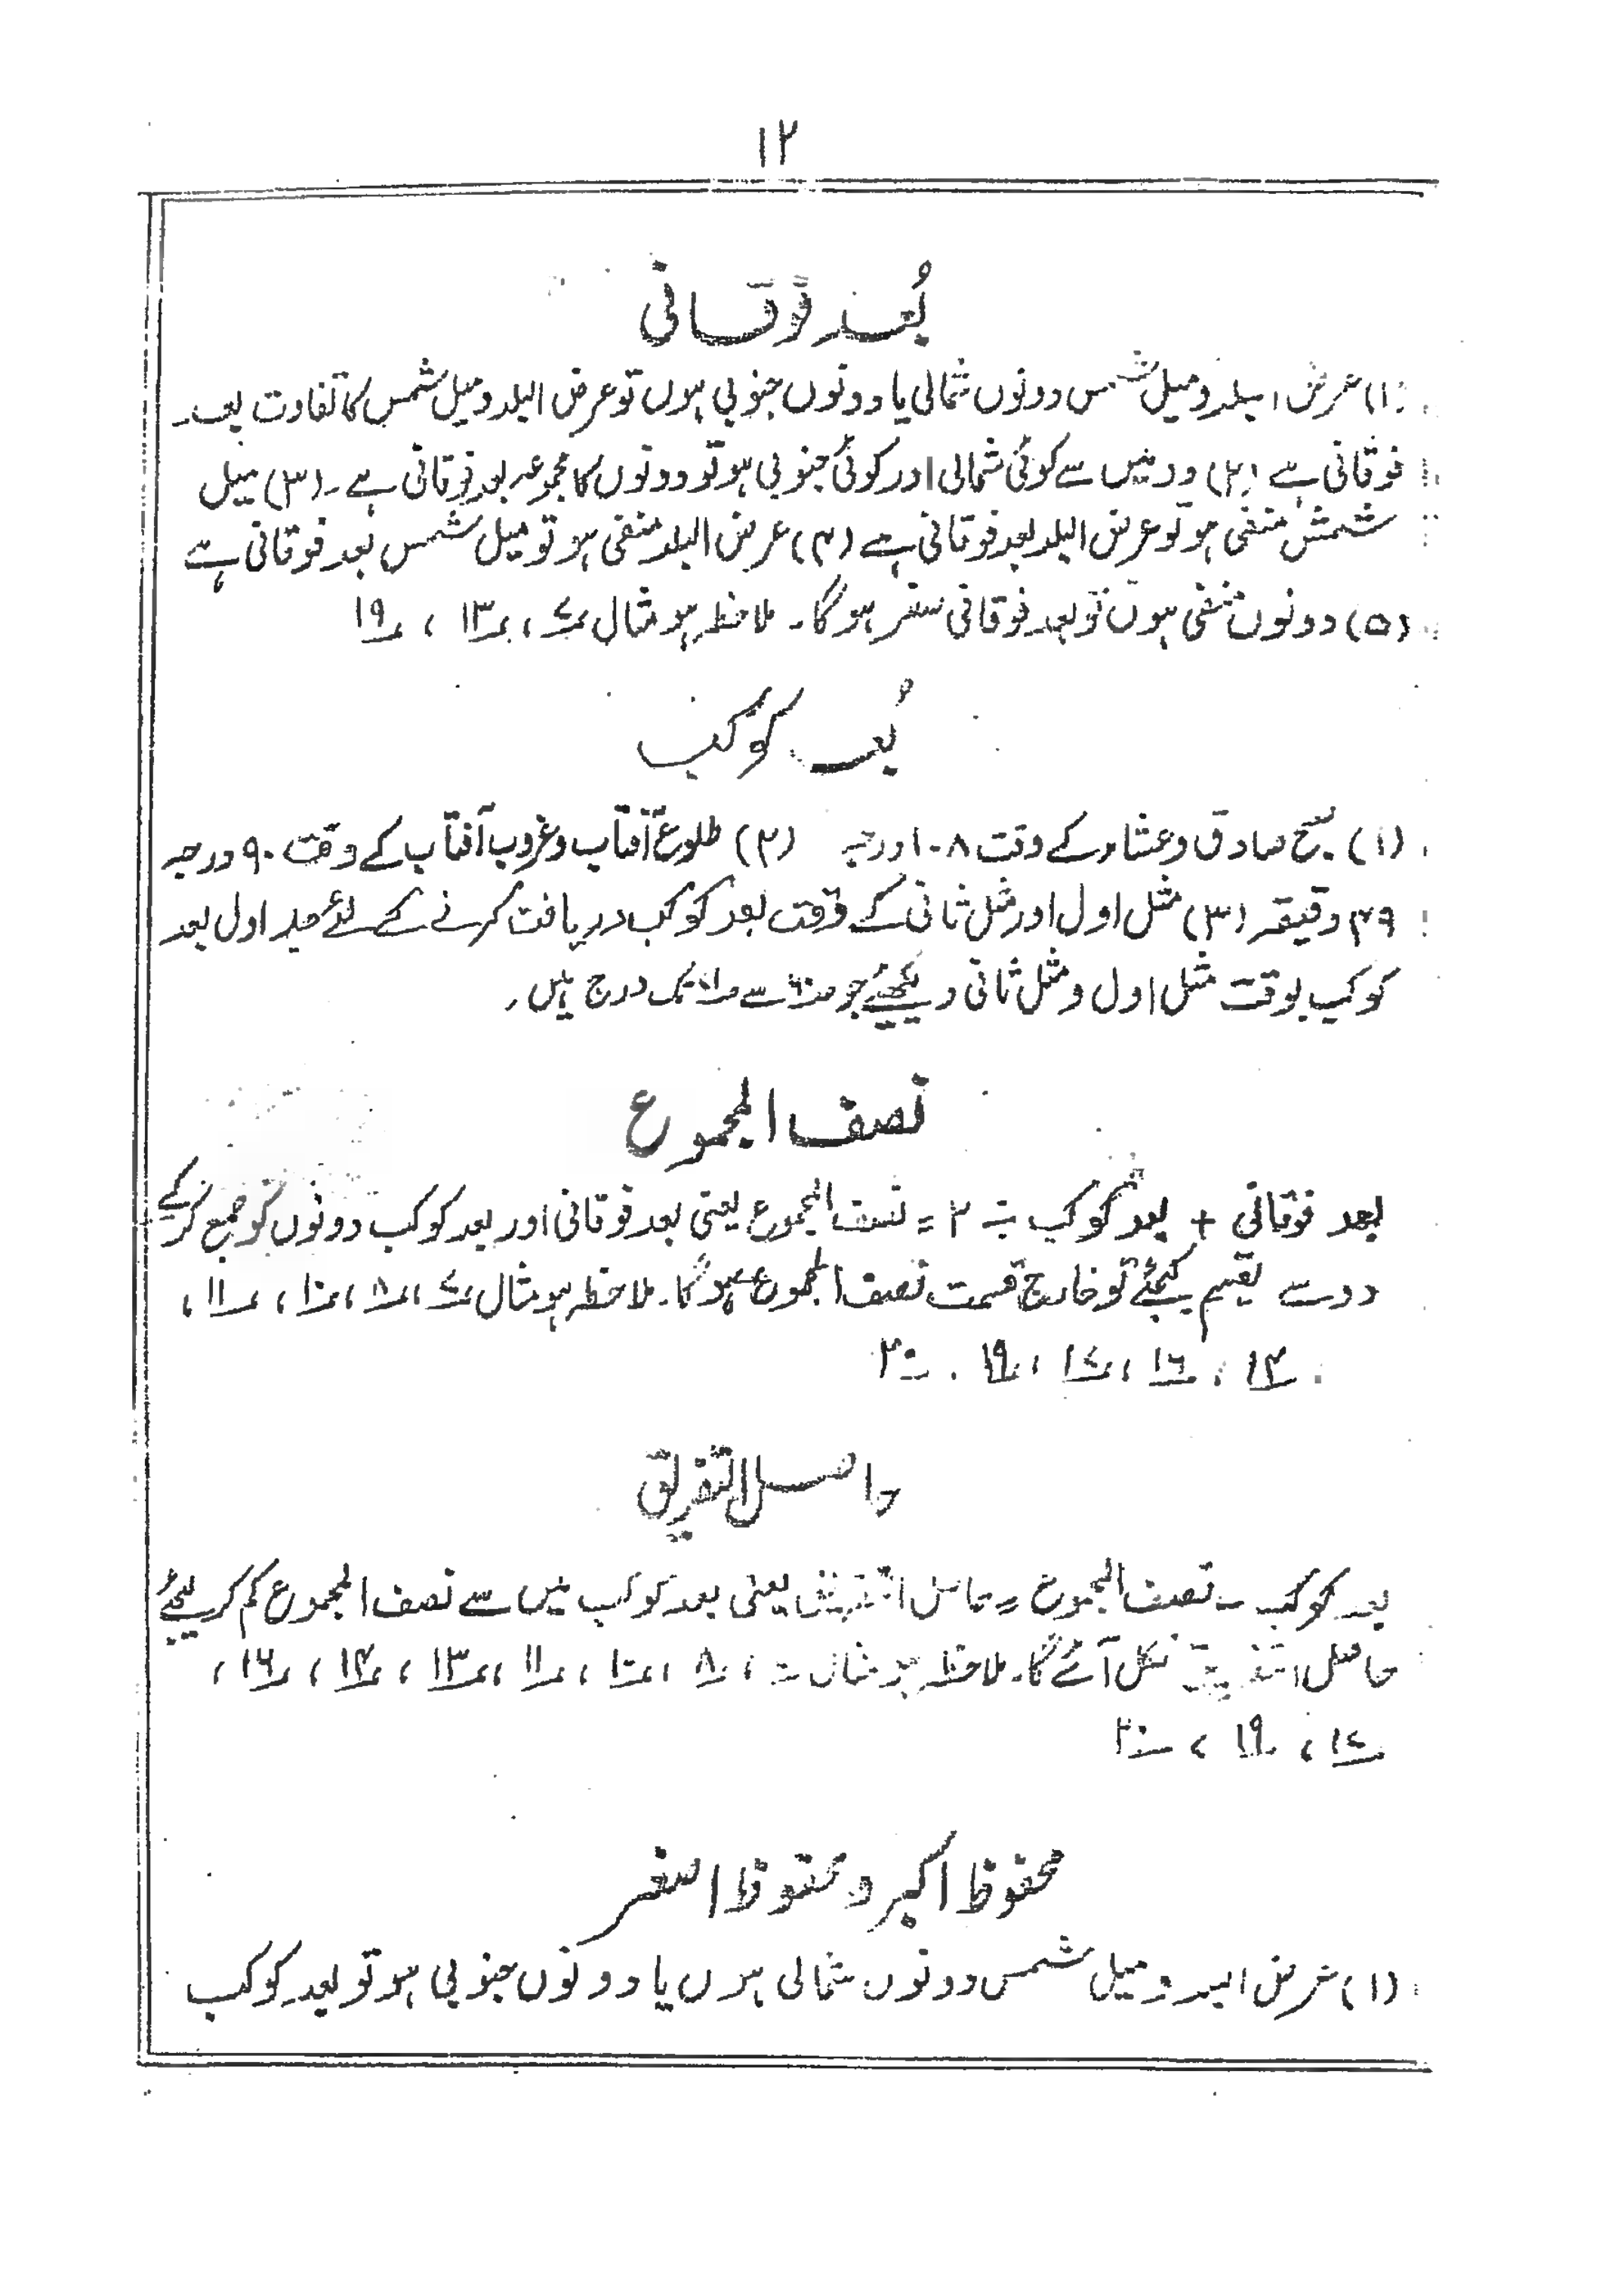 ۱۲
بُعد فوقانی
(۱) عرض البلد و میل شمس دونوں شمالی یا دونوں جنوبی ہوں تو عرض البلد و میل شمس کا تفاوت بعد
فوقانی ہے (۲) ورنہ میں سے کوئی شمالی اور کوئی جنوبی ہو تو دونوں کا مجموعہ بعد فوقانی ہے۔ (۳) میل
شمس منفی ہو تو عرض البلد بعد فوقانی ہے (۴) عرض البلد منفی ہو تو میل شمس بعد فوقانی ہے
(۵) دونوں منفی ہوں تو بعد فوقانی صفر ہوگا۔ ملاحظہ ہو مثال ۷، ۱۳، ۱۹
بُعد کوکب
(۱) صبح صادق و عشاء کے وقت ۱۰۸ درجہ (۲) طلوع آفتاب و غروب آفتاب کے وقت ۹۰ درجہ
۴۹ دقیقہ (۳) مثل اول اور مثل ثانی کے وقت بعد کوکب دریافت کرنے کے لئے جداول بعد
کوکب بوقت مثل اول و مثل ثانی دیکھئے جو سے تک درج ہیں۔
نصف المجموع
بعد فوقانی + بعد کوکب ÷ ۲ = نصف المجموع یعنی بعد فوقانی اور بعد کوکب دونوں کو جمع کرکے
دو سے تقسیم کیجئے تو خارج قسمت نصف المجموع ہوگا۔ ملاحظہ ہو مثال ۷، ۸، ۱۰، ۱۱،
۱۴، ۱۶، ۱۷، ۱۹، ۲۰
حاصل التفریق
بعد کوکب - نصف المجموع = حاصل التفریق یعنی بعد کوکب میں سے نصف المجموع کم کر لیجئے
حاصل التفریق نکل آئے گا۔ ملاحظہ ہو مثال ، ۸، ۱۰، ۱۱، ۱۳، ۱۴، ۱۶،
۱۷، ۱۹، ۲۰
محفوظ اکبر و محفوظ اصغر
(۱) عرض البلد و میل شمس دونوں شمالی ہوں یا دونوں جنوبی ہو تو بعد کوکب